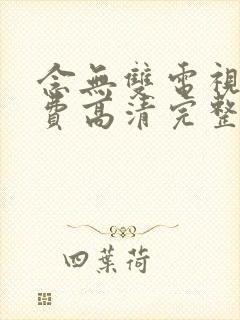 念無雙電視
費高清完整
四葉荷